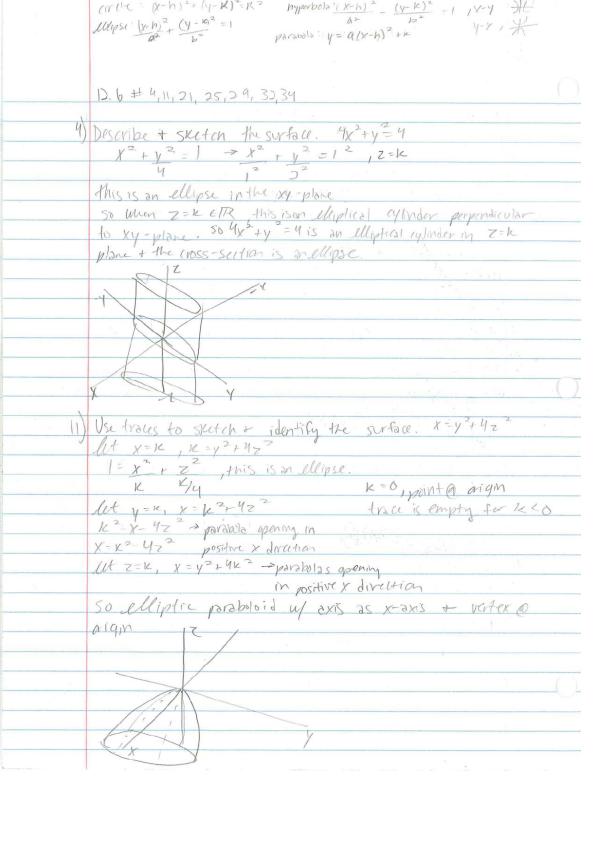 circle: (x-h)²+(y-k)²=r² hyperbola: (x-h)²/a² - (y-k)²/b² = 1
ellipse: (x-h)²/a² + (y-k)²/b² = 1
parabola: y = a(x-h)²+k
12.6 # 4,11,21, 25,29, 33,34
4) Describe + sketch the surface. 4x²+y²=4
x² + y²/4 = 1 → x²/1² + y²/2² = 1², z=k
this is an ellipse in the xy-plane
so when z=k ∈ℝ this is an elliptical cylinder perpendicular
to xy-plane. so 4x²+y²=4 is an elliptical cylinder in z=k
plane + the cross-section is an ellipse.
z
-y -x
x -z y
11) Use traces to sketch + identify the surface. x=y²+4z²
let x=k, k=y²+4z²
1= x²/k + z²/k/4, this is an ellipse.
k=0, point @ origin
let y=k, x=k²+4z² trace is empty for k<0
k²-x-4z² → parabola opening in
x=k²-4z² positive x direction
let z=k, x=y²+4k² → parabolas opening
in positive x direction
so elliptic paraboloid w/ axis as x-axis + vertex @
origin
z
x y